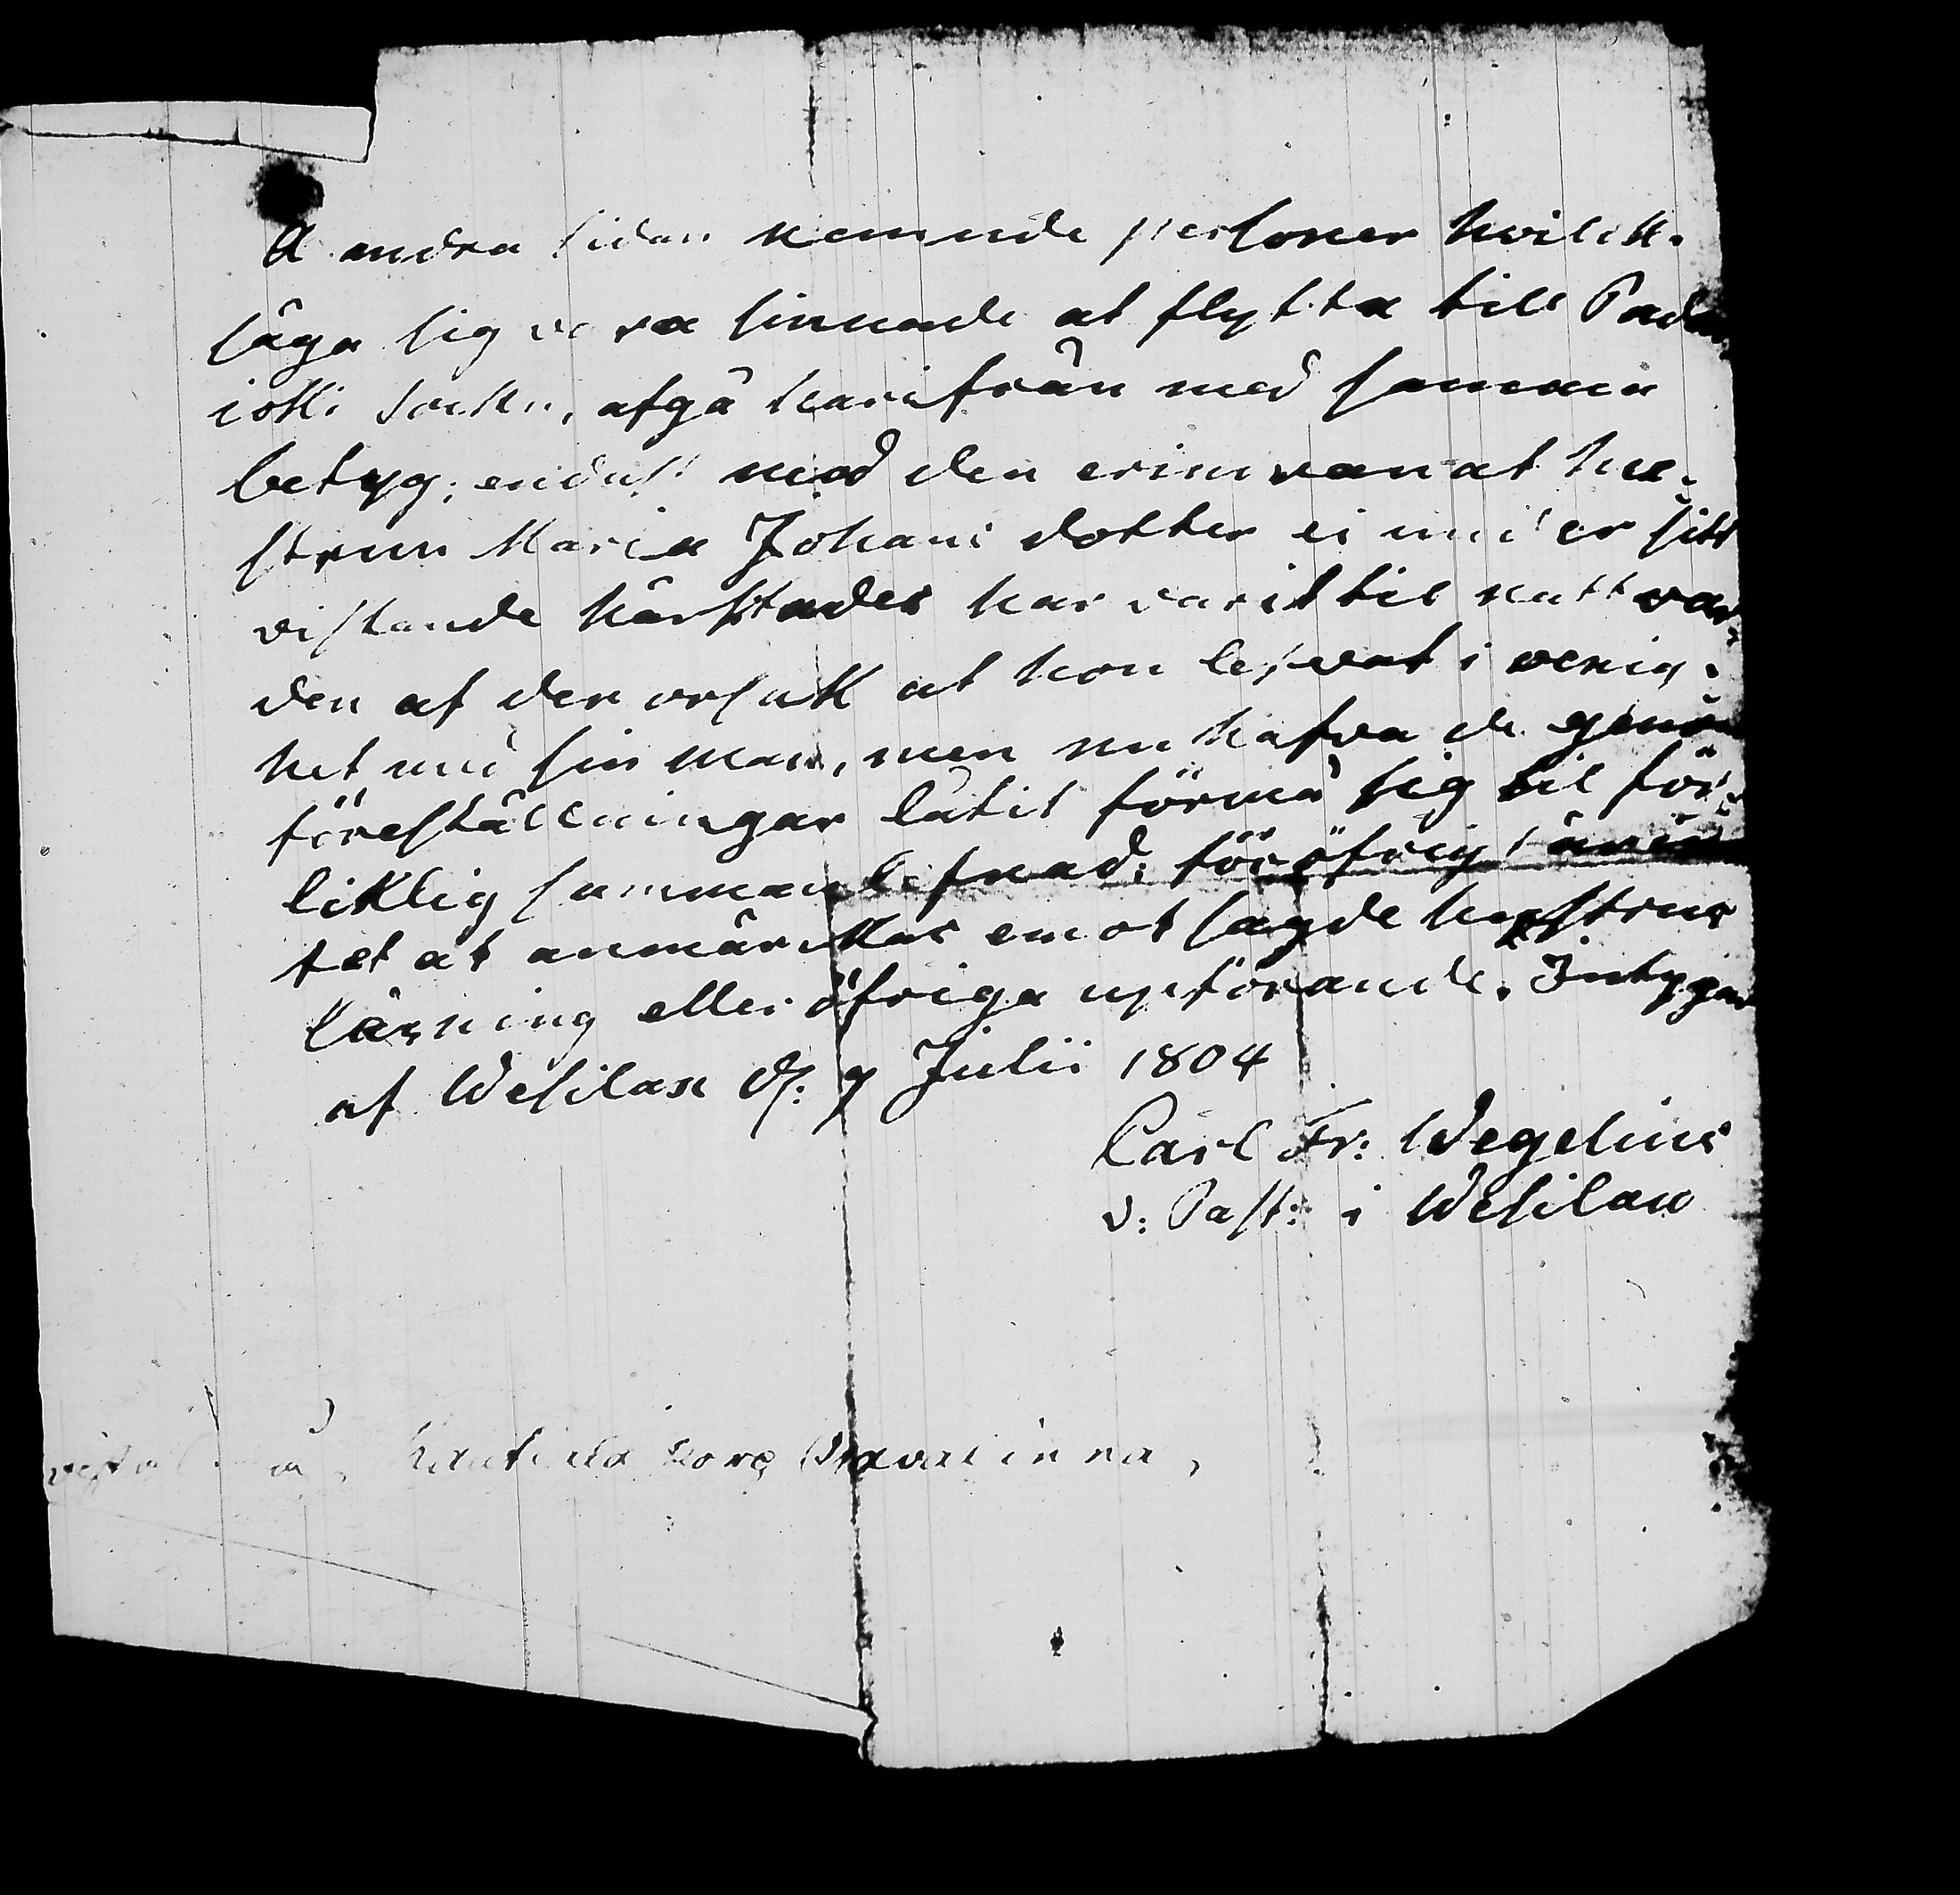 Å andra sidan nemnde personer hvilcka
säga sig vara sinnade at flytta till Pada
iocki Sockn, afgå härifrån med samma
betyg; endast med den erinran at hu-
strun Maria Johans dotter ei under sitt
vistande härstädes har varit til nattvar-
den af den orsak at hon lefvat i oenig-
het med sin man, men nu hafva de genom
föreställningar låtit förmå sig til för-
liklig sammanlefnad; föröfrigt är in
tet at anmärckas emot sagde hustrus
läsning eller öfriga upförande. Intygar
af Wesilax d: 9 Julii 1804
Carl Fr: Wegelius
V: Past: i Wesilax